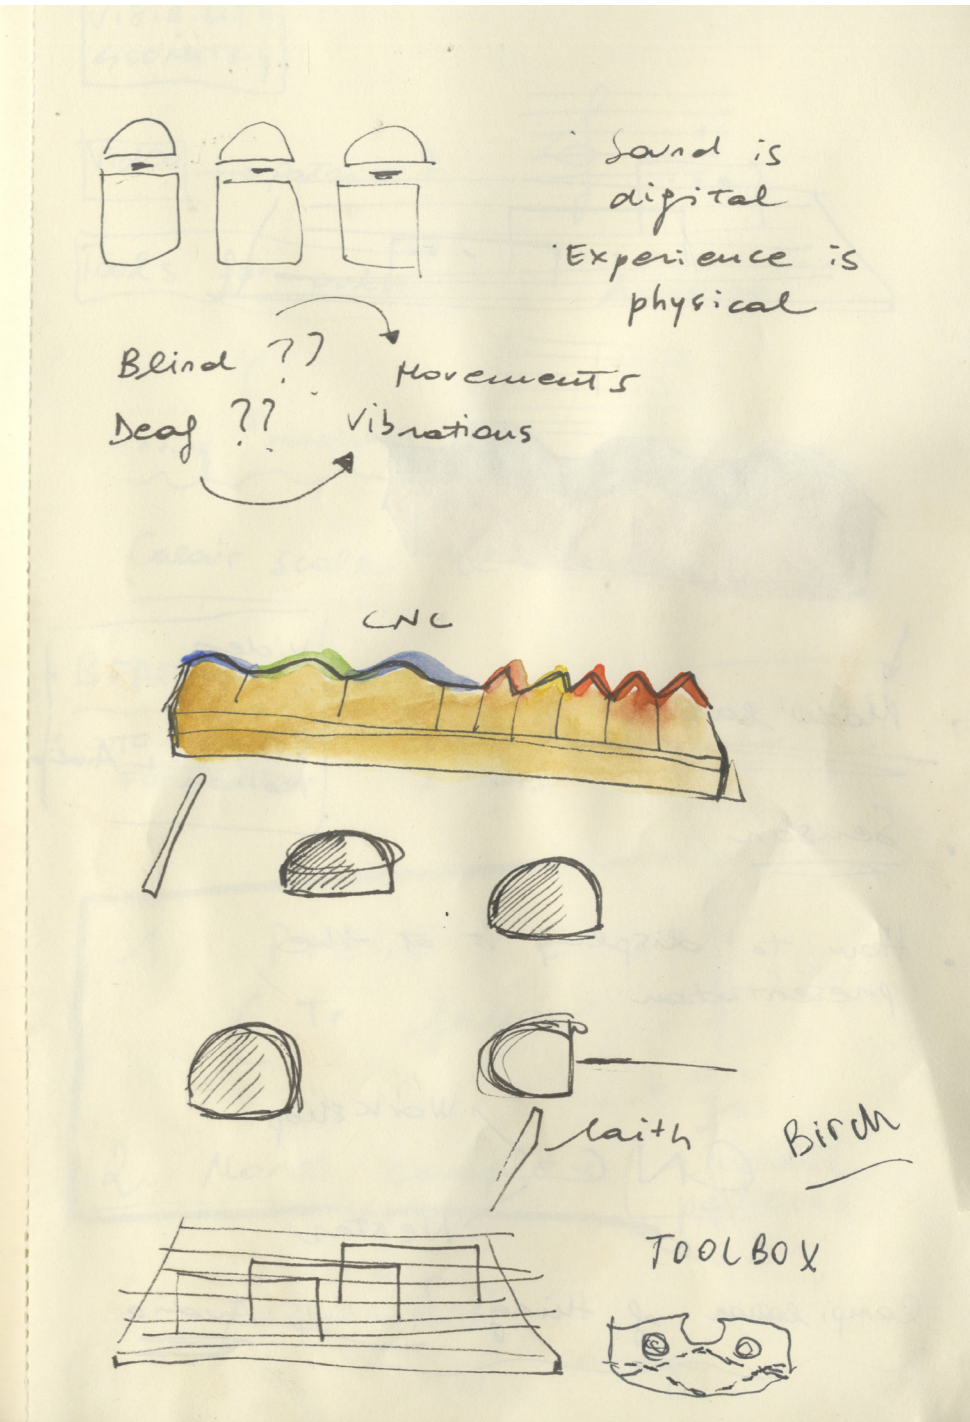 Sound is
digital
Experience is
physical
Blind ??
Movements
Deaf ??
Vibrations
CNC
laith
Birch
TOOLBOX